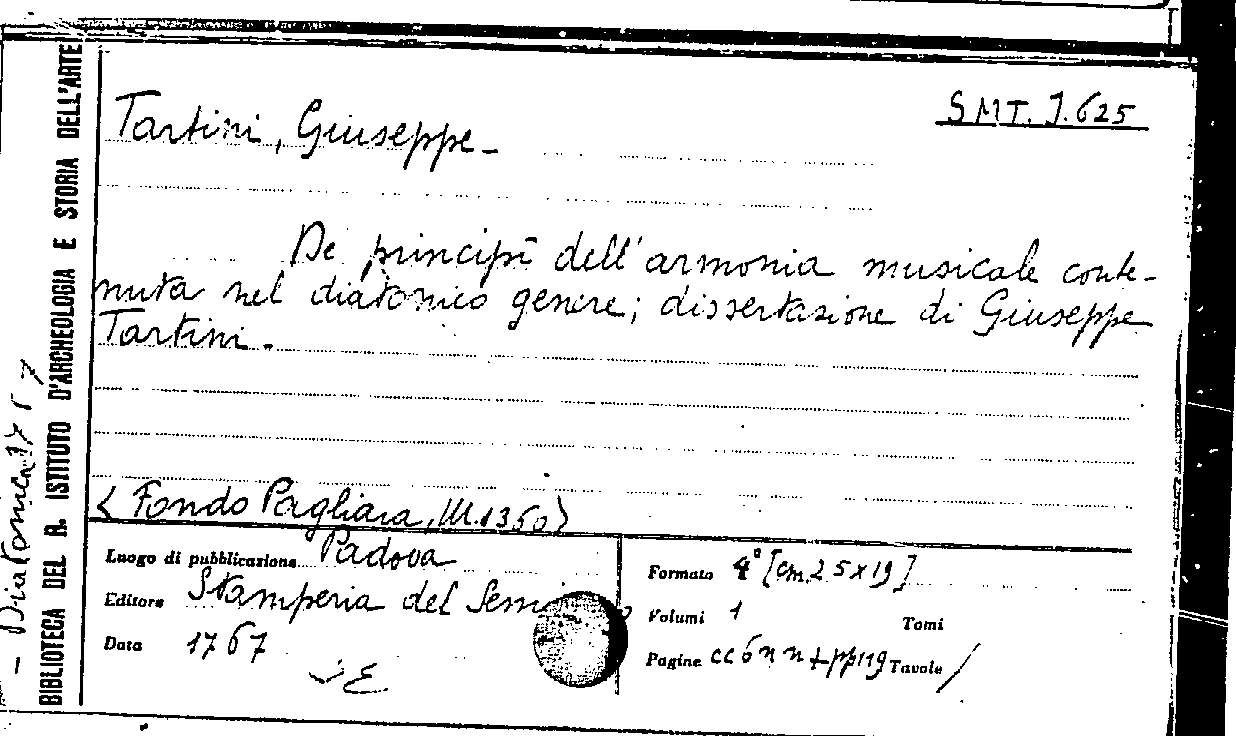 SMT. J.625
Tartini, Giuseppe -
De principî dell'armonia musicale conte-
nuta nel diatonico genere; dissertazione di Giuseppe
Tartini.
< Fondo Pagliara, M.1350>
Luogo di pubblicazione Padova
Editore Stamperia del
Data 1767
Formato 4° [cm. 25 x 19]
Volumi 1 Tomi
Pagine cc 6 nn + pp 119 Tavole /
BIBLIOTECA DEL R. ISTITUTO D'ARCHEOLOGIA E STORIA DELL'ARTE